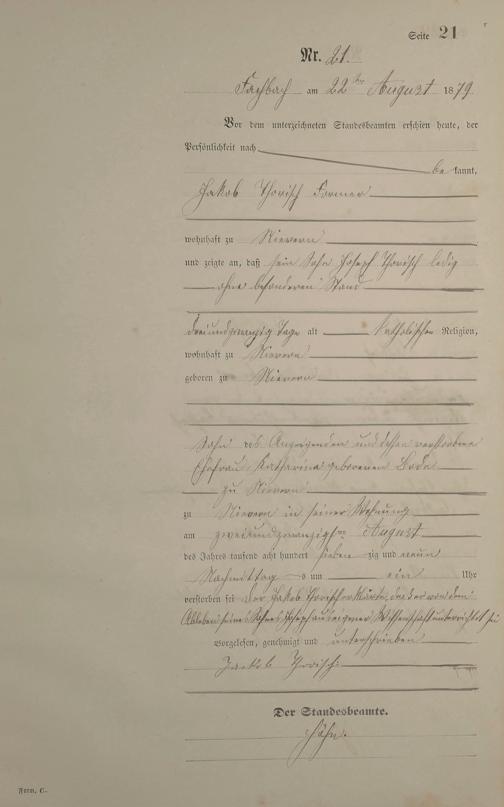 Seite 21
Nr. 21.
Fachbach am 22ten August 1879
Vor dem unterzeichneten Standesbeamten erschien heute, der
Persönlichkeit nach
be kannt,
Jakob Thorisch Former
wohnhaft zu Nievern
und zeigte an, daß sein Sohn Joseph Thorisch ledig
ohne besonderen Stand
dreiundzwanzig Tage alt katholischer Religion,
wohnhaft zu Nievern
geboren zu Nievern
Sohn des Anzeigenden und dessen verstorbene
Ehefrau Katharina geborenen Bode
zu Nievern
zu Nievern in seiner Wohnung
am zweiundzwanzigsten August
des Jahres tausend acht hundert sieben zig und neun
Nachmittags um ein Uhr
verstorben sei Der Jakob Thorisch erklärte, das er von dem
Ableben seines Sohnes Joseph aus eigener Wissenschaft unterrichtet sei
Vorgelesen, genehmigt und unterschrieben
Jackob Thorisch
Der Standesbeamte.
Form. C.